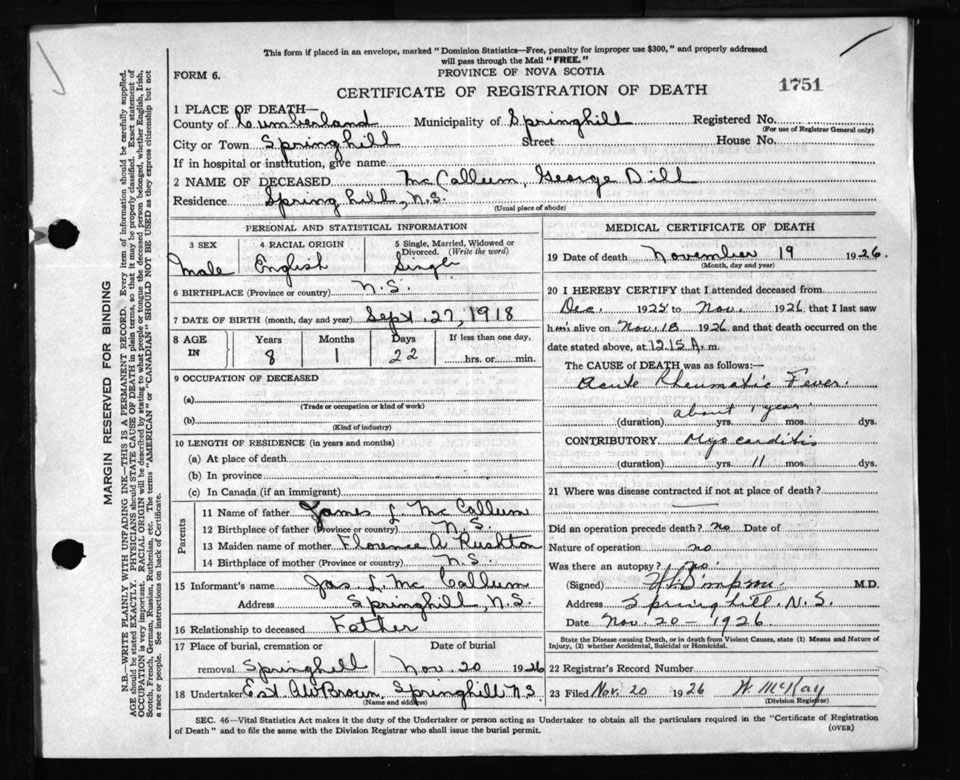 This form if placed in an envelope, marked "Dominion Statistics—Free, penalty for improper use $300," and properly addressed
will pass through the Mail "FREE."
FORM 6.
PROVINCE OF NOVA SCOTIA
CERTIFICATE OF REGISTRATION OF DEATH
1751
1 PLACE OF DEATH—
County of Cumberland Municipality of Springhill Registered No.
(For use of Registrar General only)
City or Town Springhill Street House No.
If in hospital or institution, give name
2 NAME OF DECEASED McCallum, George Dill
Residence Spring hill, N.S.
(Usual place of abode)
PERSONAL AND STATISTICAL INFORMATION
3 SEX 4 RACIAL ORIGIN 5 Single, Married, Widowed or
Divorced. (Write the word)
Male English Single
6 BIRTHPLACE (Province or country) N.S.
7 DATE OF BIRTH (month, day and year) Sept 27, 1918
8 AGE Years Months Days If less than one day,
IN 8 1 22 hrs. or min.
9 OCCUPATION OF DECEASED
(a)
(Trade or occupation or kind of work)
(b)
(Kind of industry)
10 LENGTH OF RESIDENCE (in years and months)
(a) At place of death
(b) In province
(c) In Canada (if an immigrant)
Parents
11 Name of father James L. McCallum
12 Birthplace of father (Province or country) N.S.
13 Maiden name of mother Florence A Rushton
14 Birthplace of mother (Province or country) N.S.
15 Informant's name Jas L. McCallum
Address Springhill, N.S.
16 Relationship to deceased Father
17 Place of burial, cremation or Date of burial
removal Springhill Nov. 20 1926
18 Undertaker Est. AW Brown, Springhill NS
(Name and address)
MEDICAL CERTIFICATE OF DEATH
19 Date of death November 19 1926.
(Month, day and year)
20 I HEREBY CERTIFY that I attended deceased from
Dec. 1925 to Nov. 1926 that I last saw
him alive on Nov. 18 1926 and that death occurred on
the date stated above, at 12.15 A. m.
The CAUSE of DEATH was as follows:—
Acute Rheumatic Fever.
about 1 year
(duration) yrs. mos. dys.
CONTRIBUTORY Myocarditis
(duration) yrs. 11 mos. dys.
21 Where was disease contracted if not at place of death?
Did an operation precede death? no Date of
Nature of operation no
Was there an autopsy? no.
(Signed) M.D.
Address Springhill. N.S.
Date Nov. 20 - 1926.
State the Disease causing Death, or in death from Violent Causes, state (1) Means and Nature of
Injury, (2) whether Accidental, Suicidal or Homicidal.
22 Registrar's Record Number
23 Filed Nov. 20 1926 W. McKay
(Division Registrar)
SEC. 46—Vital Statistics Act makes it the duty of the Undertaker or person acting as Undertaker to obtain all the particulars required in the "Certificate of Registration
of Death" and to file the same with the Division Registrar who shall issue the burial permit.
(OVER)
MARGIN RESERVED FOR BINDING
N.B.—WRITE PLAINLY WITH UNFADING INK—THIS IS A PERMANENT RECORD. Every item of information should be carefully supplied.
AGE should be stated EXACTLY. PHYSICIANS should STATE CAUSE OF DEATH in plain terms, so that it may be properly classified. Exact statement of
OCCUPATION is very important. RACIAL ORIGIN will be described by stating to what people or tongue the deceased person belonged, whether English, Irish,
Scotch, French, German, Russian, Ruthenian, etc. The terms "AMERICAN" or "CANADIAN" SHOULD NOT BE USED as they express citizenship but not
a race or people. See instructions on back of Certificate.